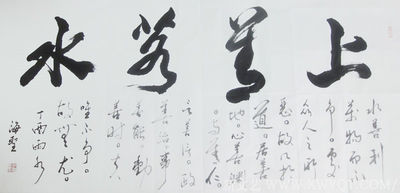 上善若水
水善利
萬物而不
爭。處
众人之所
惡。故几於
道。居善
地心善渊
。與善仁。
言善信。政
善治。事
善能。動
善時。夫
唯不爭。
故無尤。
丁酉雨水